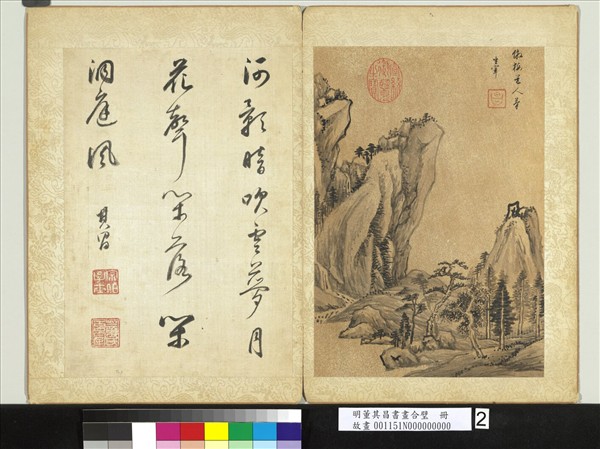 倣梅道人筆
玄宰
河影暗吹雲夢月
花聲閒落
洞庭風
其昌
明董其昌書畫合璧 冊
故畫001151N000000000
2